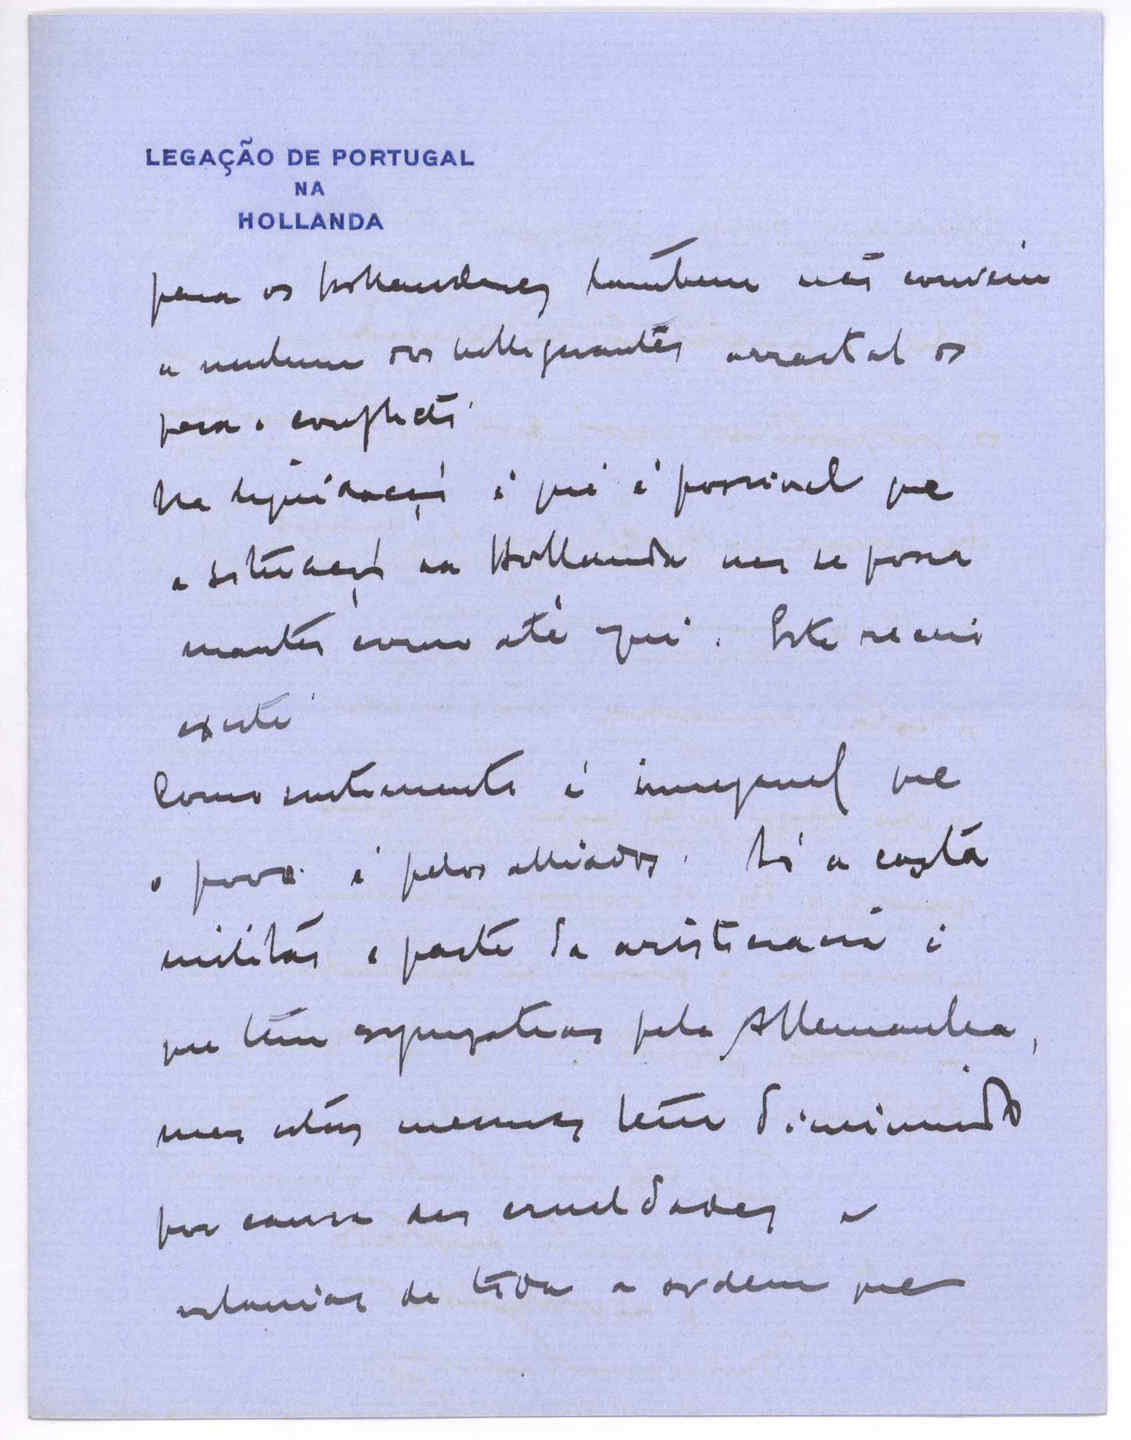 LEGAÇÃO DE PORTUGAL
NA
HOLLANDA
para os hollandezes tambem não convem
a nenhum dos belligerantes arrastal os
para o conflicto.
Na liquidação é que é possivel que
a situação da Hollanda não se possa
manter como até aqui. Este receio
existe.
Como sentimento é innegavel que
o povo é pelos alliados. Só a casta
militar e parte da aristocracia é
que têm sympathias pela Allemanha,
mas estas mesmas têm diminuido
por causa das crueldades e
infamias de toda a ordem que